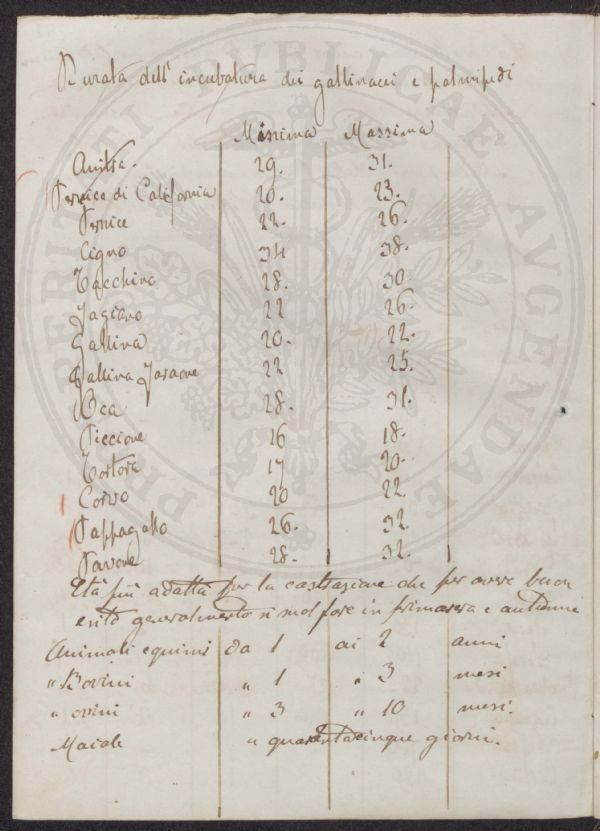 Durata dell' incubatura dei gallinacei e palmipedi
Minima Massima
Anitra. 29. 31.
Pernice di California 20. 23.
Pernice 22. 26.
Cigno 34 38.
Tacchino 28. 30.
Fagiano 22 26.
Gallina 20. 22.
Gallina Faraone 22 25.
Oca 28. 31.
Piccione 16 18.
Tortora 17 20.
Corvo 20 22
Pappagallo 26. 32
Pavone 28. 32.
Età più adatta per la castrazione che per avere buon
esito generalmente si suol fare in primavera e autunno
Animali equini da 1 ai 2 anni
" Bovini " 1 " 3 mesi
" ovini " 3 " 10 mesi.
Maiale " quarantacinque giorni.
PROSPERITATI PUBLICAE AUGENDAE